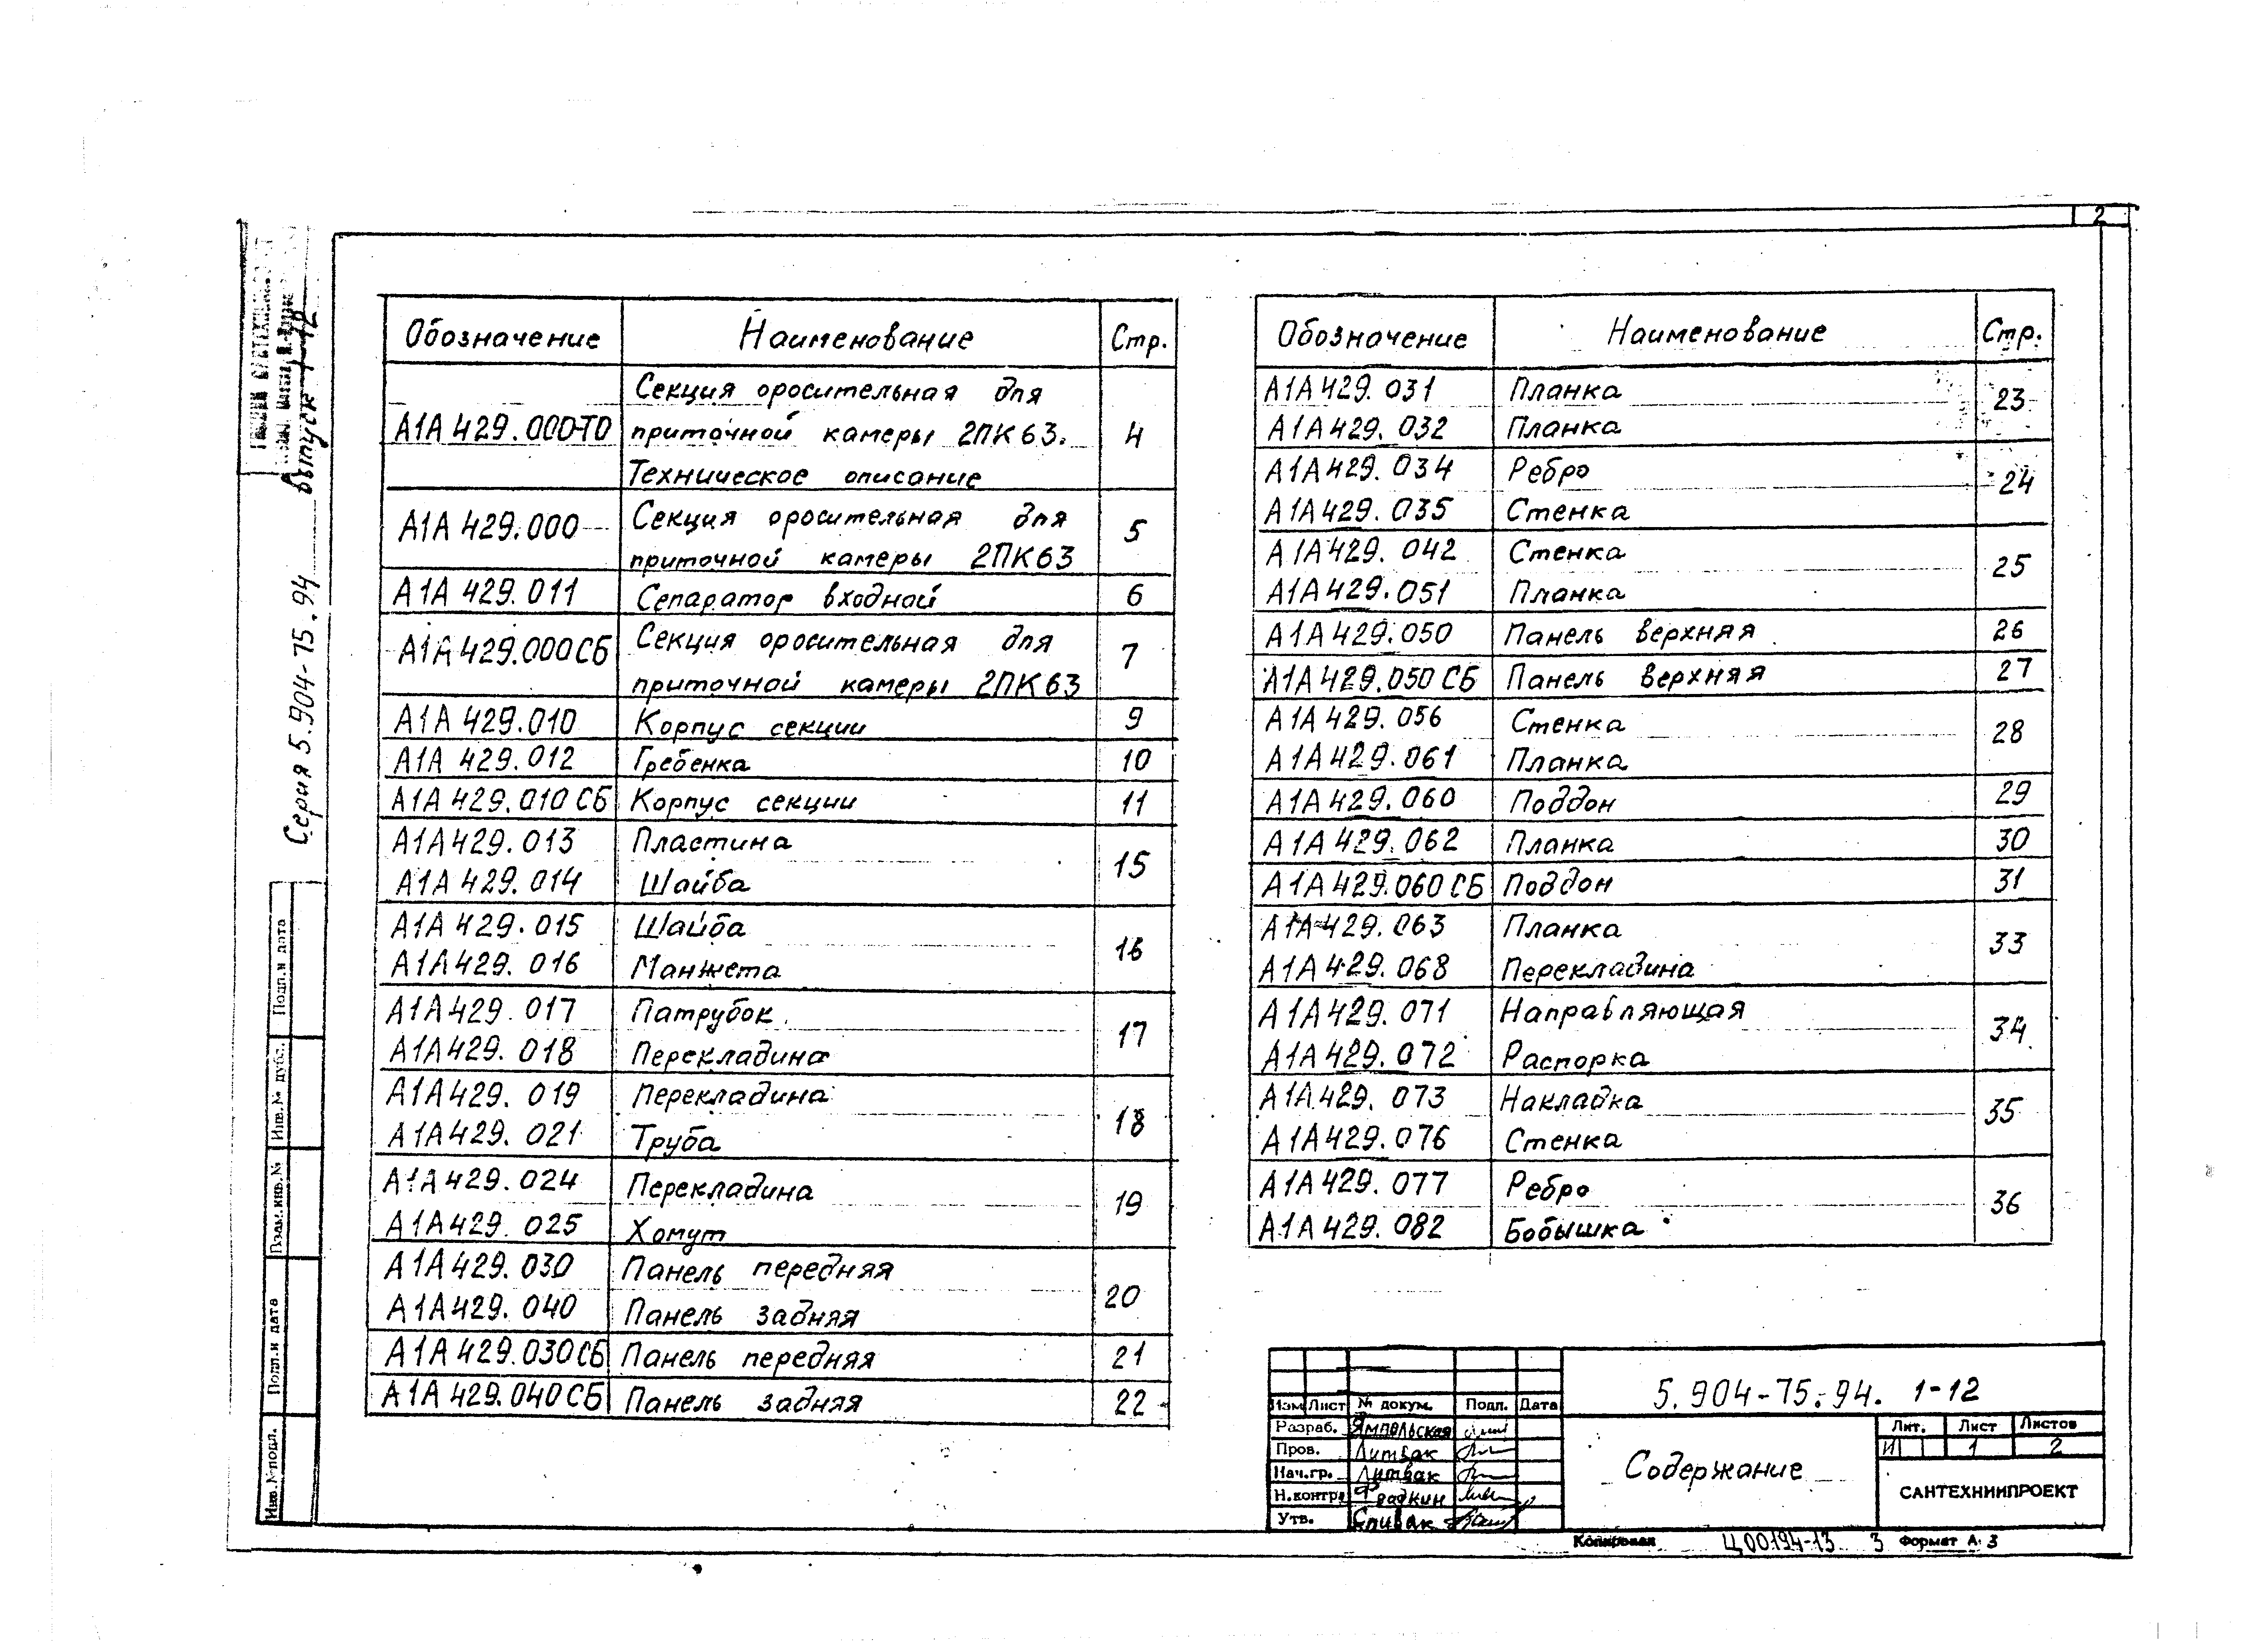 2
Обозначение Наименование Стр.
Секция оросительная для
А1А 429.000ТО приточной камеры 2ПК63. 4
Техническое описание
А1А 429.000 Секция оросительная для 5
приточной камеры 2ПК63
А1А 429.011 Сепаратор входной 6
А1А 429.000СБ Секция оросительная для 7
приточной камеры 2ПК63
А1А 429.010 Корпус секции 9
А1А 429.012 Гребенка 10
А1А 429.010 СБ Корпус секции 11
А1А 429.013 Пластина 15
А1А 429.014 Шайба
А1А 429.015 Шайба 16
А1А 429.016 Манжета
А1А 429.017 Патрубок 17
А1А 429.018 Перекладина
А1А 429.019 Перекладина 18
А1А 429.021 Труба
А1А 429.024 Перекладина 19
А1А 429.025 Хомут
А1А 429.030 Панель передняя 20
А1А 429.040 Панель задняя
А1А 429.030СБ Панель передняя 21
А1А 429.040СБ Панель задняя 22
Обозначение Наименование Стр.
А1А 429.031 Планка 23
А1А 429.032 Планка
А1А 429.034 Ребро 24
А1А 429.035 Стенка
А1А 429.042 Стенка 25
А1А 429.051 Планка
А1А 429.050 Панель верхняя 26
А1А 429.050 СБ Панель верхняя 27
А1А 429.056 Стенка 28
А1А 429.061 Планка
А1А 429.060 Поддон 29
А1А 429.062 Планка 30
А1А 429.060 СБ Поддон 31
А1А 429.063 Планка 33
А1А 429.068 Перекладина
А1А 429.071 Направляющая 34
А1А 429.072 Распорка
А1А 429.073 Накладка 35
А1А 429.076 Стенка
А1А 429.077 Ребро 36
А1А 429.082 Бобышка
Серия 5.904-75.94 Выпуск 1-12
Подп.и дата
Инв.№ дубл.
Взам.инв.№
Подп.и дата
Инв.№подл.
5.904-75.94. 1-12
Изм Лист № докум. Подп. Дата
Разраб. Ямпольская
Пров. Литвак
Нач.гр. Литвак
Н.контр Фрадкин
Утв. Спивак
Содержание
Лит. Лист Листов
И 1 2
САНТЕХНИИПРОЕКТ
Копировал Ц00194-13 3 Формат А3